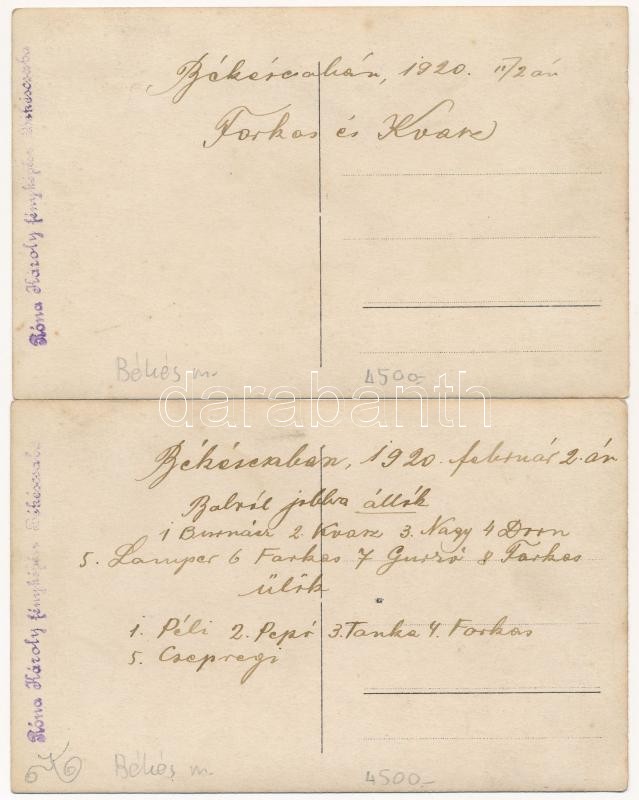 Békéscsabán, 1920. II/2 án
Farkas és Kvasz
Róna Károly fényképész Békéscsaba
Békés m.
4500.-
darabanth
Békéscsabán, 1920. február 2.-án
Balról jobbra állók
1 Burnácz 2. Kvasz 3. Nagy 4 Dorn
5. Lamper 6 Farkas 7 Guzsó 8 Farkas
ülők
1. Péli 2. Pepó 3. Tanka 4. Farkas
5. Csepregi
Róna Károly fényképész Békéscsaba
Békés m.
4500.-